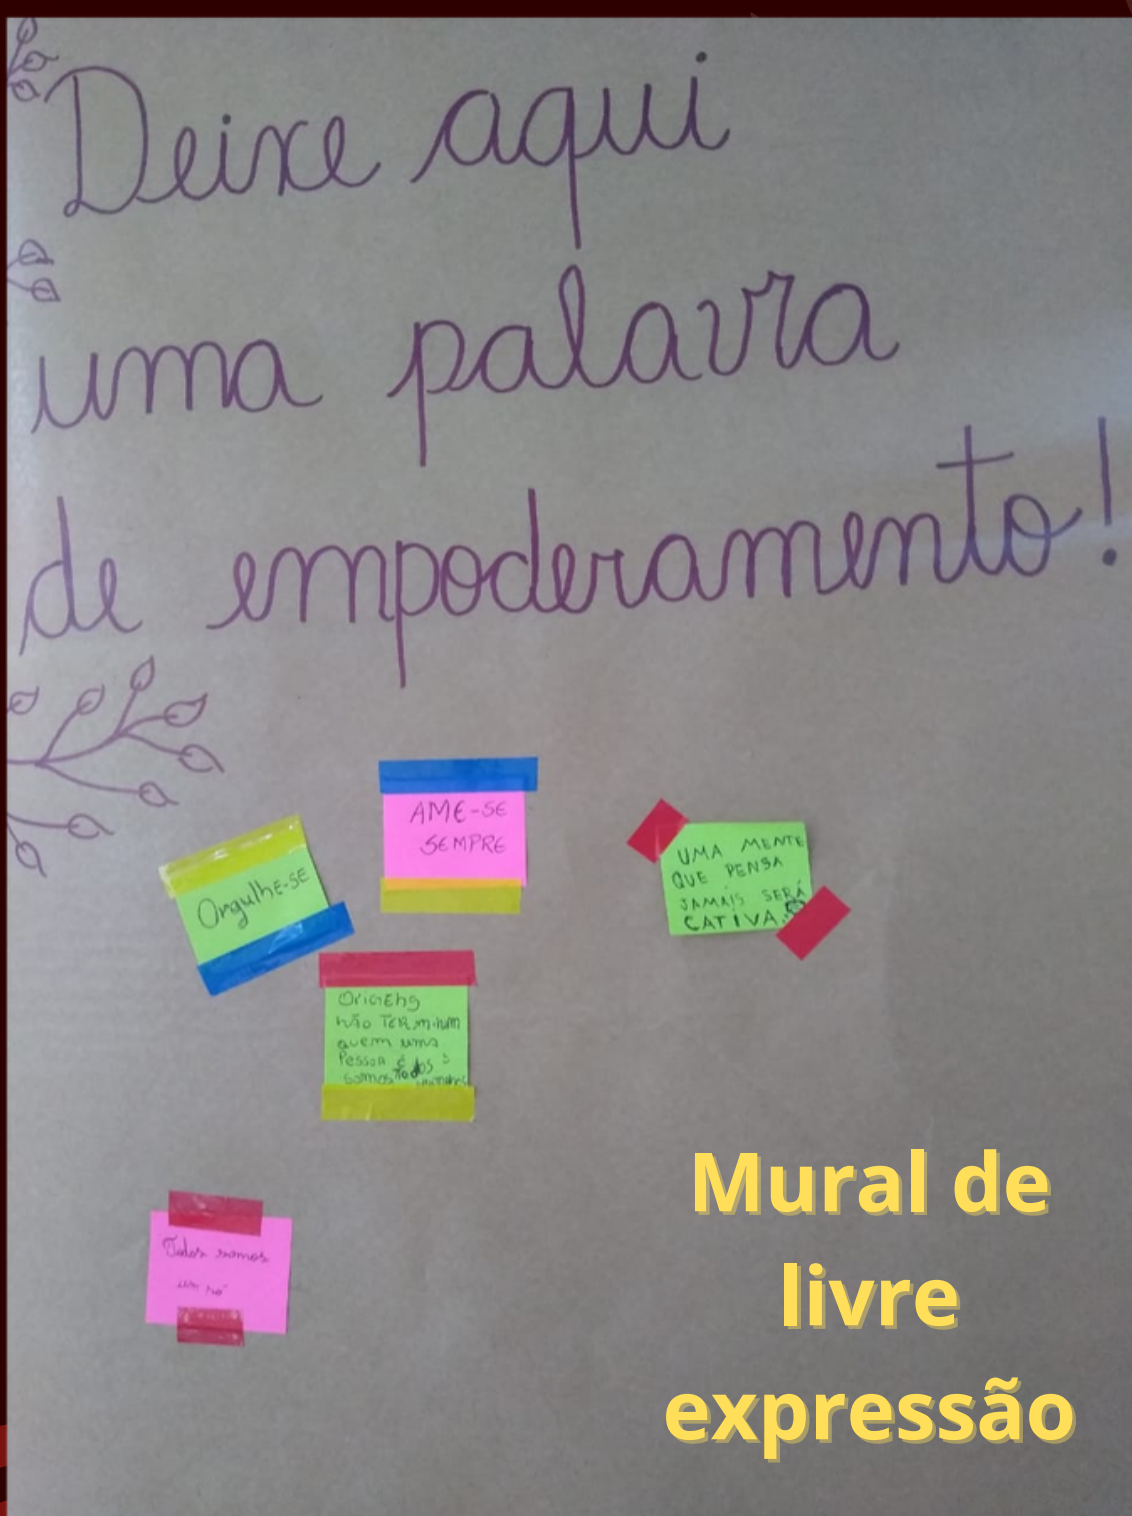 Deixe aqui
uma palavra
de empoderamento!
AME-SE
SEMPRE
Orgulhe-SE
UMA MENTE
QUE PENSA
JAMAIS SERÁ
CATIVA.
OriGEhg
não TERminam
quem uma
Pessoa é
somos Todos
Todos somos
um só
Mural de
livre
expressão